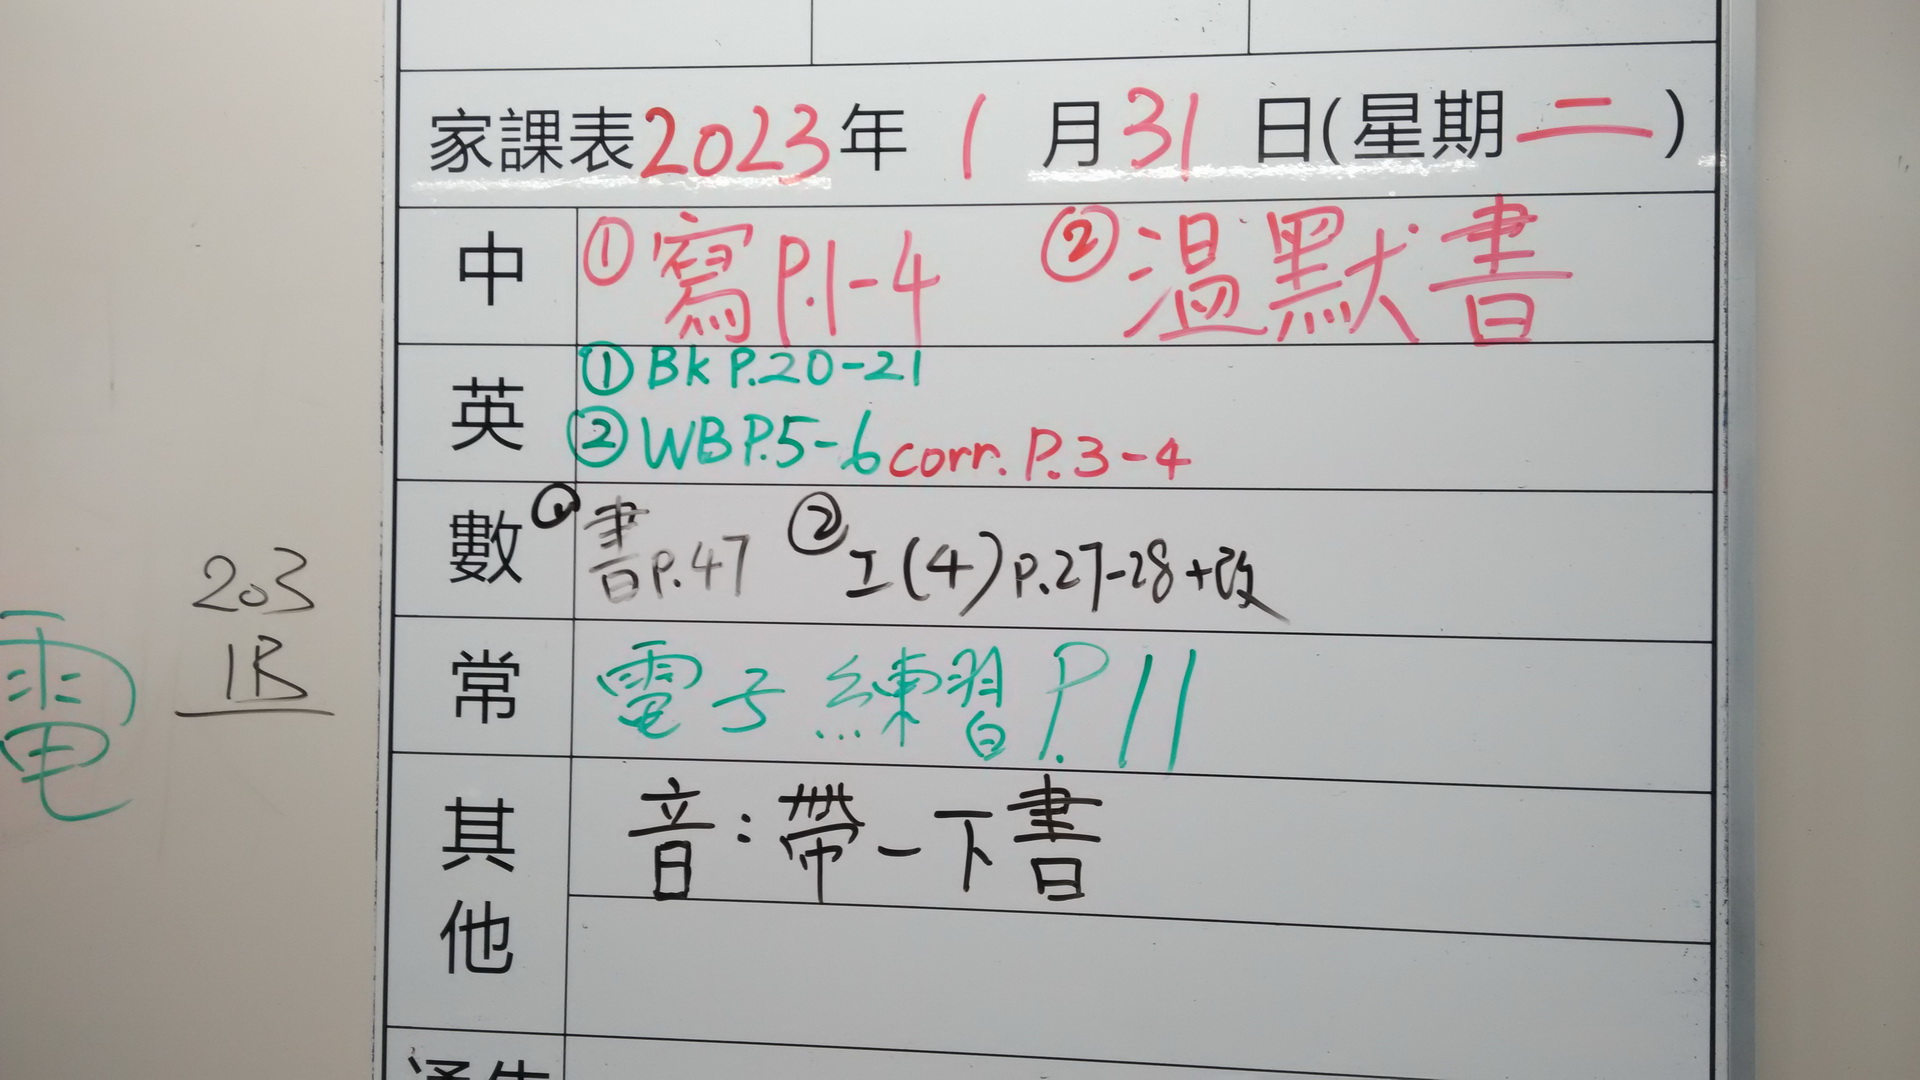 家課表2023年 1 月31 日(星期二)
中 ①寫P.1-4 ②溫默書
英 ①Bk P.20-21
②WB P.5-6 corr. P.3-4
數 ①書P.47 ②工(4)P.27-28+改
常 電子練習P.11
其他 音:帶一下書
通告
203
1B
電